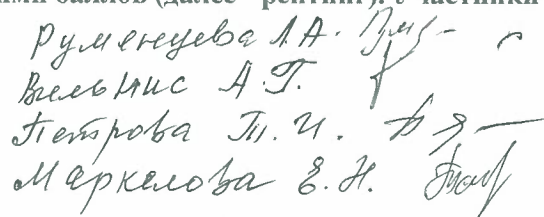 баллов (далее - рейтинг).
Руменцева Л.А.
Вильмис А.Г.
Петрова Т.И.
Маркелова Е.Н.